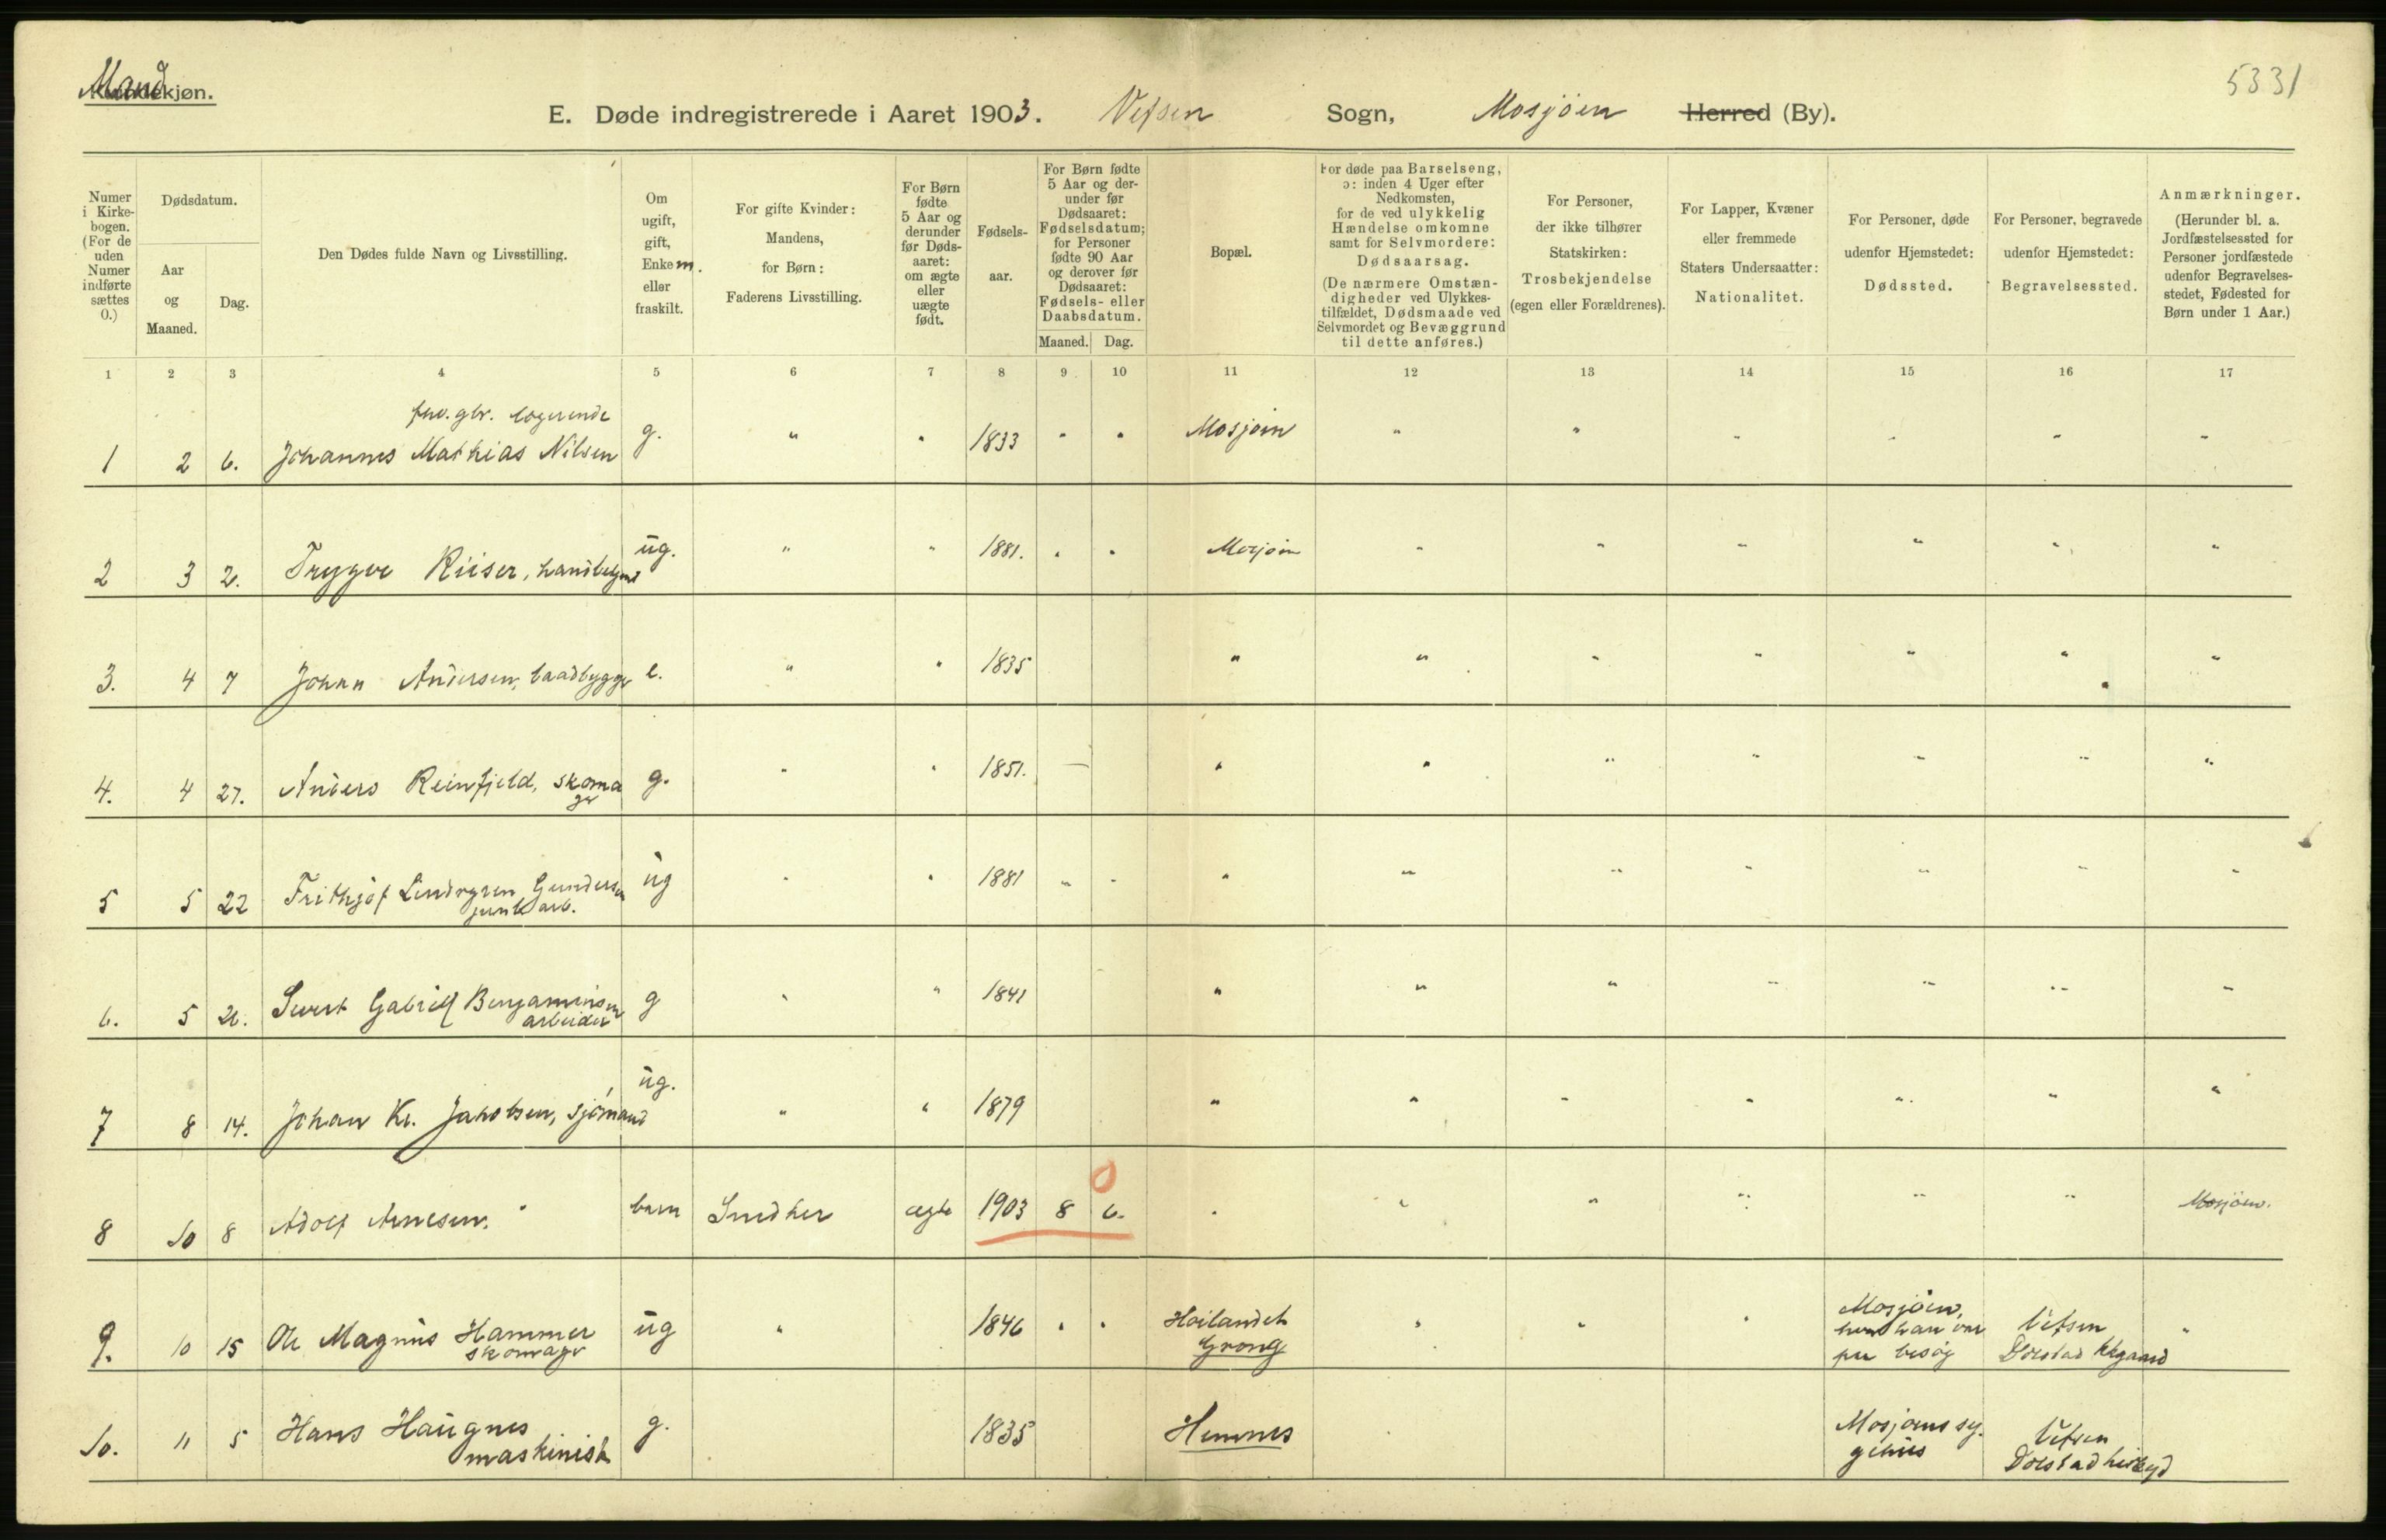 Mandkjøn.
5331
E. Døde indregistrerede i Aaret 1903. Vefsen Sogn, Mosjöen Herred (By).
Numer i Kirkebogen. (For de uden Numer indførte sættes 0.)
Dødsdatum.
Aar og Maaned.
Dag.
Den Dødes fulde Navn og Livsstilling.
Om ugift, gift, Enkem. eller fraskilt.
For gifte Kvinder: Mandens, for Børn: Faderens Livsstilling.
For Børn fødte 5 Aar og derunder før Dødsaaret: om ægte eller uægte født.
Fødselsaar.
For Børn fødte 5 Aar og derunder før Dødsaaret: Fødselsdatum; for Personer fødte 90 Aar og derover før Dødsaaret: Fødsels- eller Daabsdatum.
Maaned. Dag.
Bopæl.
For døde paa Barselseng, ɔ: inden 4 Uger efter Nedkomsten, for de ved ulykkelig Hændelse omkomne samt for Selvmordere: Dødsaarsag. (De nærmere Omstændigheder ved Ulykkestilfældet, Dødsmaade ved Selvmordet og Bevæggrund til dette anføres.)
For Personer, der ikke tilhører Statskirken: Trosbekjendelse (egen eller Forældrenes).
For Lapper, Kvæner eller fremmede Staters Undersaatter: Nationalitet.
For Personer, døde udenfor Hjemstedet: Dødssted.
For Personer, begravede udenfor Hjemstedet: Begravelsessted.
Anmærkninger. (Herunder bl. a. Jordfæstelsessted for Personer jordfæstede udenfor Begravelsesstedet, Fødested for Børn under 1 Aar.)
1 2 3 4 5 6 7 8 9 10 11 12 13 14 15 16 17
logerende
1 2 6. Johannes Mathias Nilsen g. " " 1833 " " Mosjöen " " " " " "
2 3 2. Trygve Kiiser, ug. " " 1881. " " Mosjöen " " " " " "
3. 4 7 Johan Andersen, baadbygger e. " " 1835 " " " " " " "
4. 4 27. Anders Reinfjeld, skoma g. " " 1851. — " " " " " " "
ger
5 5 22 Frithjof Lindgren Gundersen ug " " 1881 " " " " " " " " "
arb.
6. 5 26. Sivert Gabriel Benjaminsen g " " 1841 " " " " " " "
arbeider
7 8 14. Johan Kr. Jakobsen, sjömand ug. " " 1879 " " " " " " "
8 10 8 Adolf Arnesen. barn Snedker ægte 1903 8 6. 0 " " " " " " Mosjöen.
9. 10 15 Ole Magnus Hammer ug " 1846 " " Höilandet " " " Mosjöen, Vefsen "
skomager Grong hvor han var Dolstad Kkgaard
paa besög
10. 11 5 Hans Haugnes g. 1835 Hemnes Mosjöens sy- Vefsen
maskinist gehus Dolstad